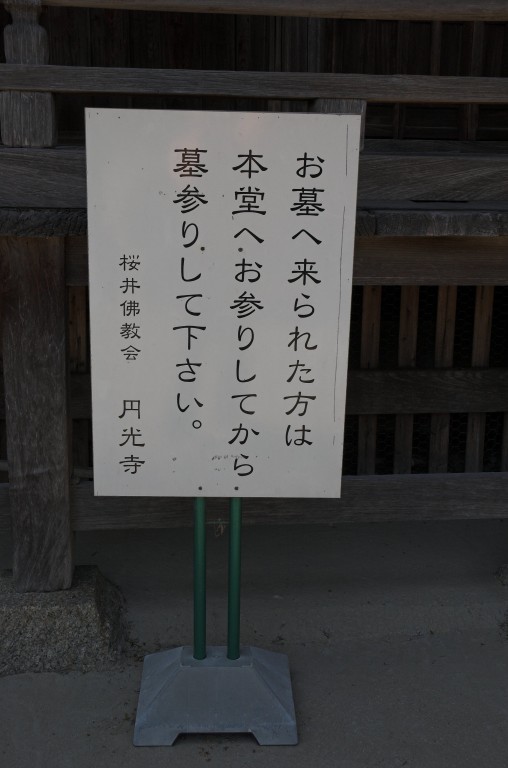 お墓へ来られた方は
本堂へお参りしてから
墓参りして下さい。
桜井佛教会　円光寺